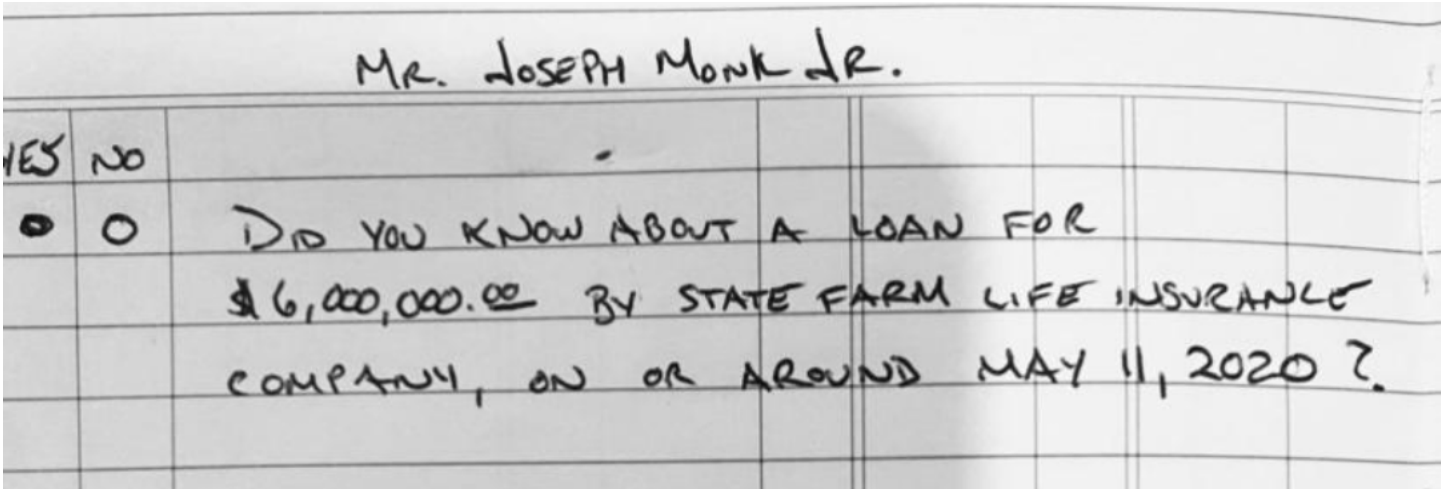 MR. JOSEPH MONK JR.
YES NO
DID YOU KNOW ABOUT A LOAN FOR
$6,000,000.00 BY STATE FARM LIFE INSURANCE
COMPANY, ON OR AROUND MAY 11, 2020?